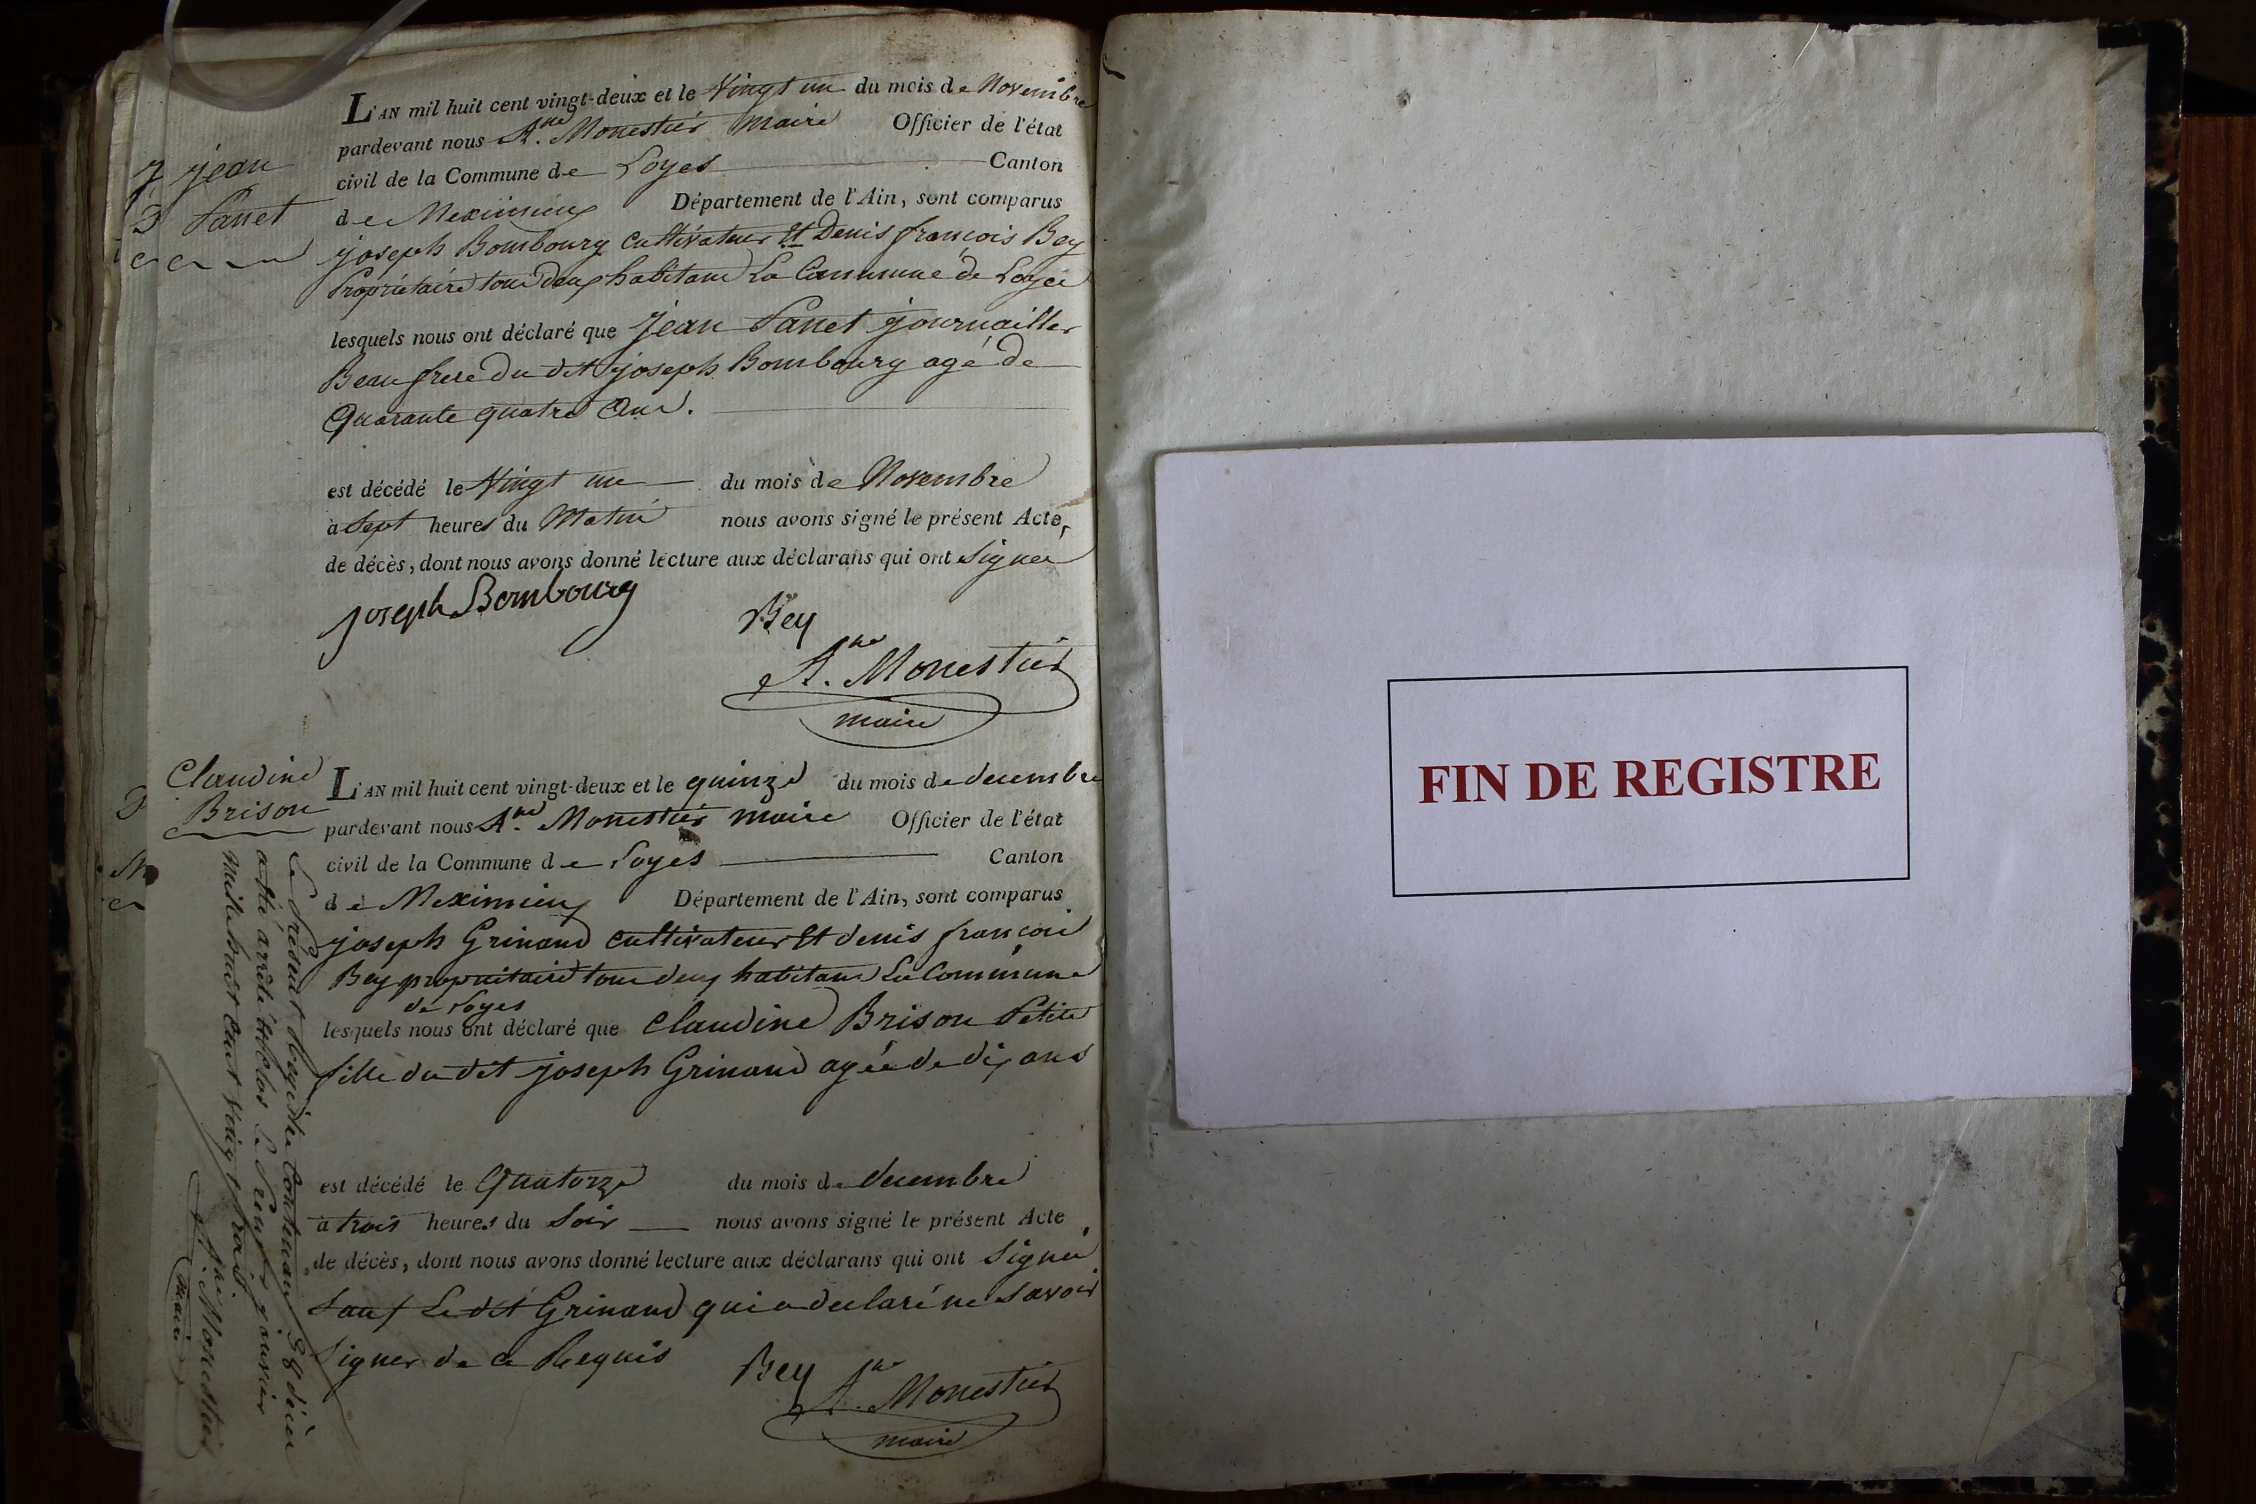 jean
Panet
L'AN mil huit cent vingt-deux et le Vingt un du mois de Novembre
pardevant nous A.ne Monestier maire Officier de l'état
civil de la Commune de Loyes Canton
de Meximieux Département de l'Ain, sont comparus
joseph Bombourg cultivateur et Denis françois Bey
Propriétaire tous deux habitant La Commune de Loyes
lesquels nous ont déclaré que jean Panet journailler
Beau frere du dit joseph Bombourg agé de
Quarante quatre Ans.
est décédé le Vingt un du mois de Novembre
à Sept heures du Matin nous avons signé le présent Acte,
de décès, dont nous avons donné lecture aux déclarans qui ont Signer
joseph Bombourg
Bey
A.ne Monestier
maire
Claudine
Brison
L'AN mil huit cent vingt-deux et le quinze du mois de decembre
pardevant nous A.ne Monestier maire Officier de l'état
civil de la Commune de Loyes Canton
de Meximieux Département de l'Ain, sont comparus
joseph Grinand cultivateur et denis françois
Bey propriitaire tous deux habitans La Commune
de Loyes
lesquels nous ont déclaré que Claudine Brison Petite
fille du dit joseph Grinand agée de dix ans
est décédé le Quatorze du mois de decembre
à trois heures du Soir nous avons signé le présent Acte,
de décès, dont nous avons donné lecture aux déclarans qui ont Signé
Sauf Le dit Grinand qui a declaré ne savoir
Signer de ce Requis
Bey
A.ne Monestier
maire
Le Présent Registre Contenant 38 décès
a été arrêté & clos Le Premier janvier
mil huit cent vingt trois.
A.ne Monestier
maire
FIN DE REGISTRE